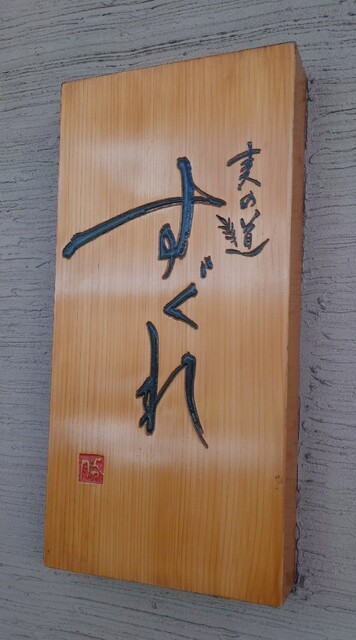 実の道
すぐれ